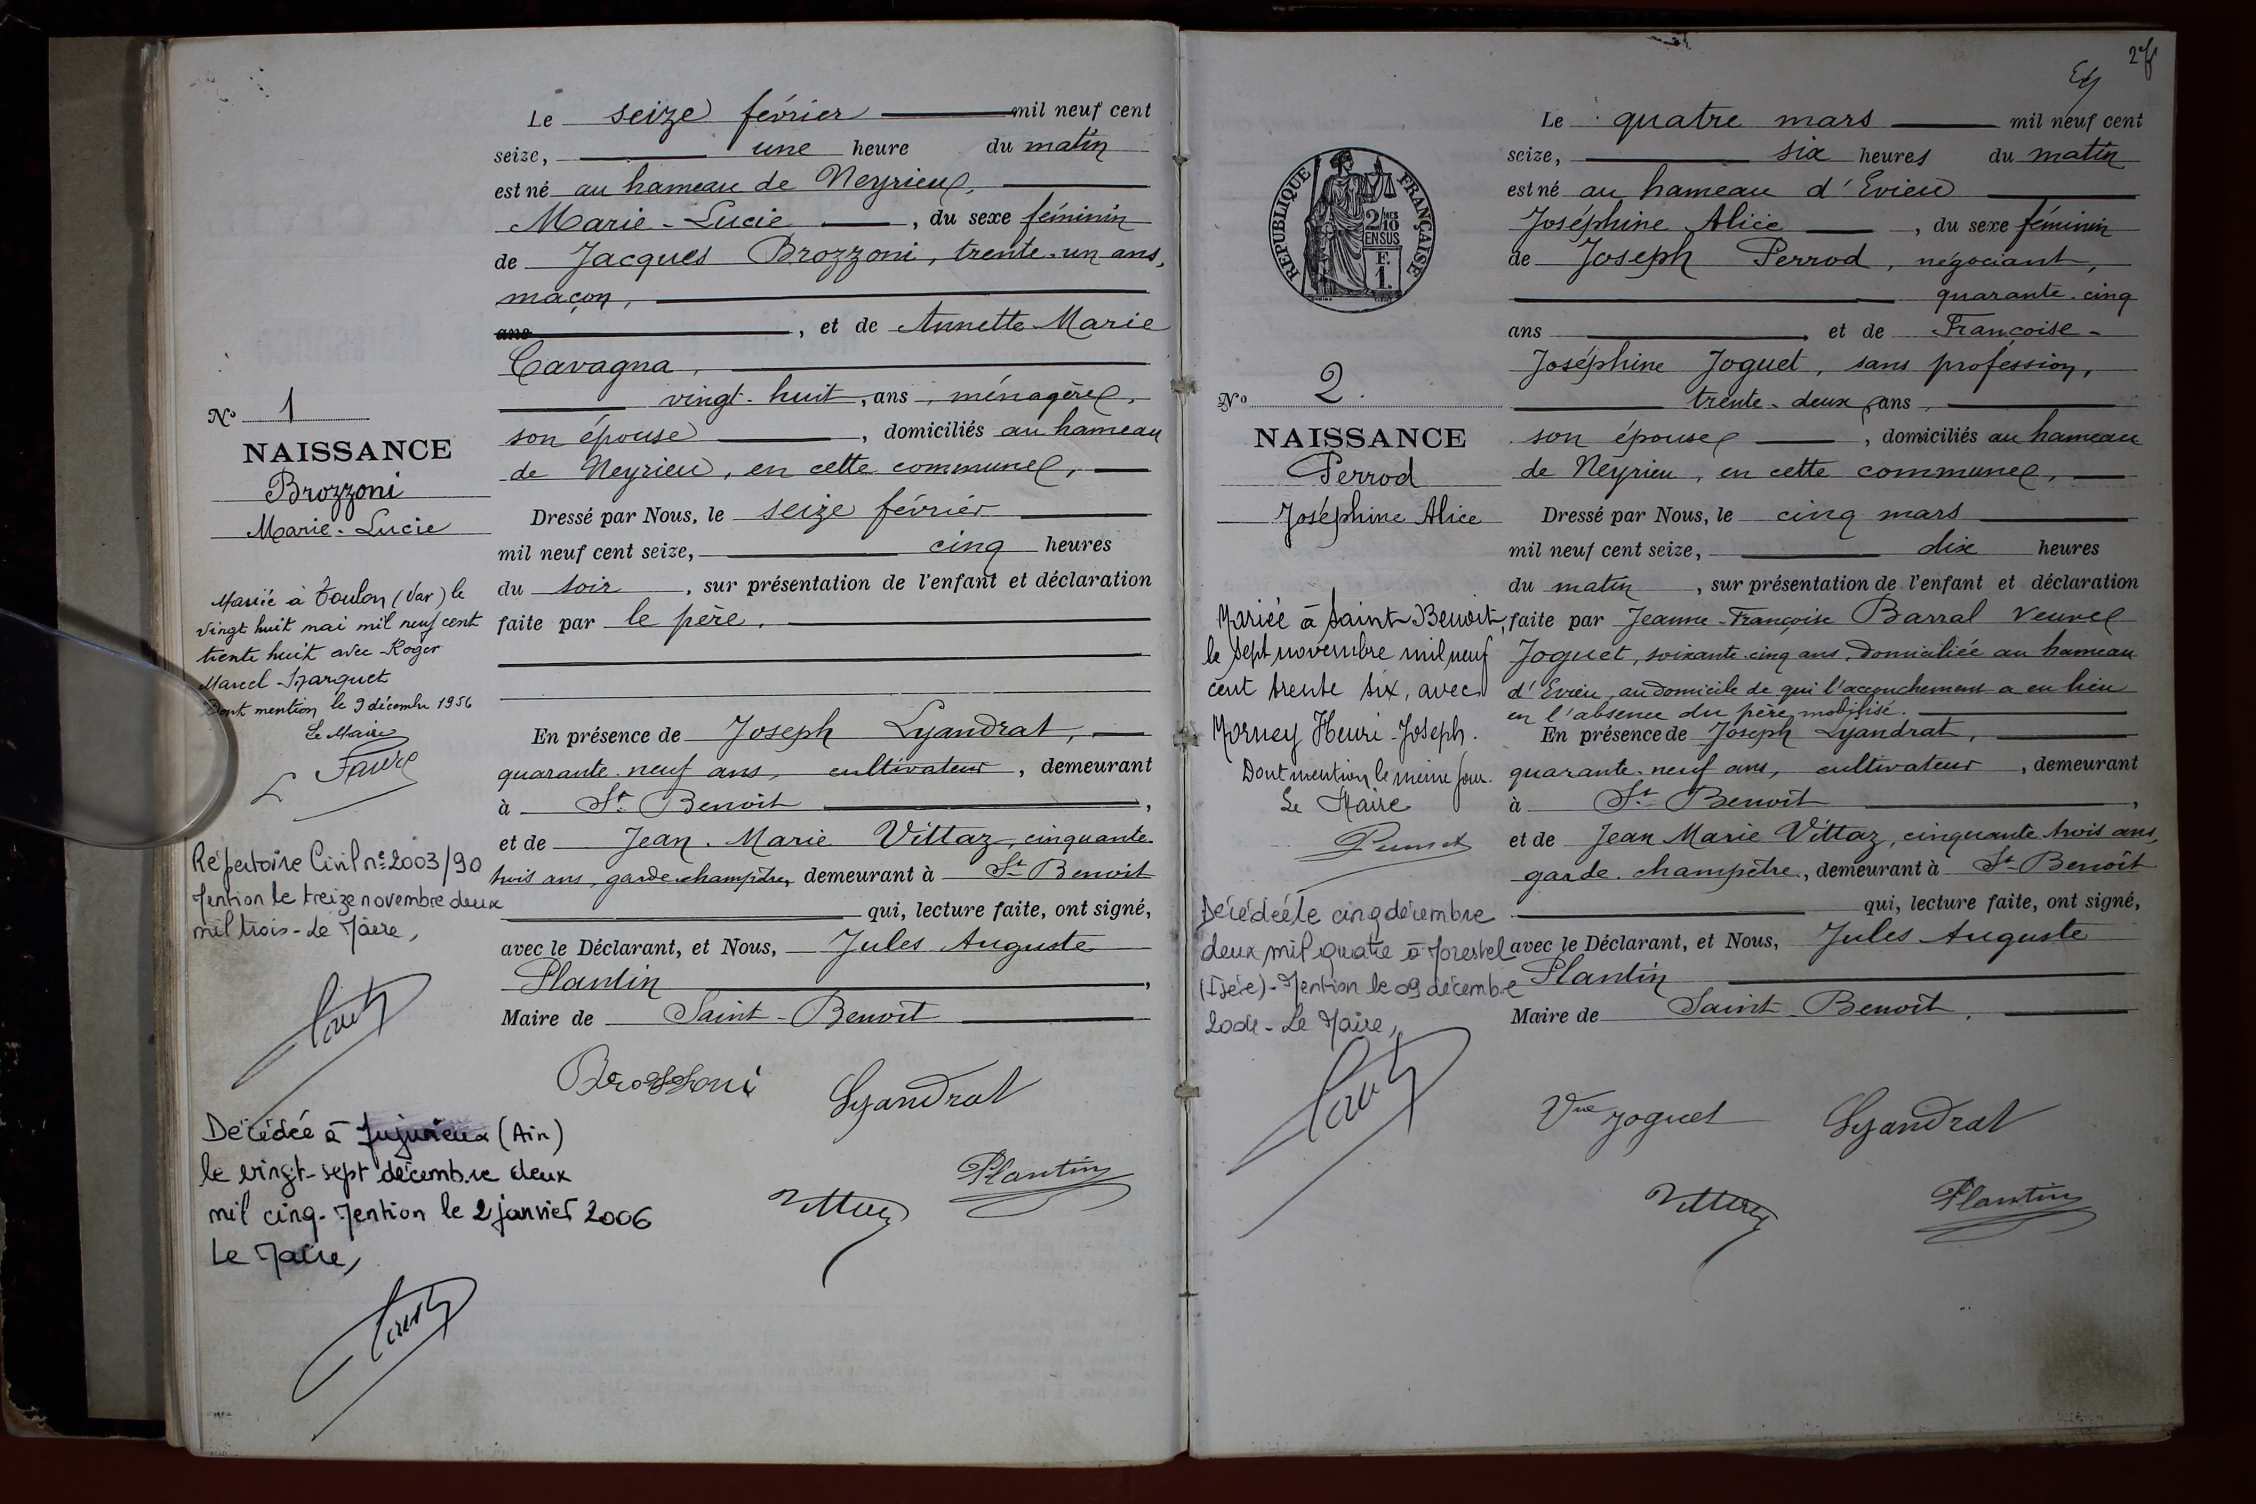 Le seize février mil neuf cent
seize, une heure du matin
est né au hameau de Neyrieu,
Marie-Lucie, du sexe féminin
de Jacques Brozzoni, trente-un ans,
maçon,
ans, et de Annette Marie
Cavagna,
vingt-huit, ans, ménagère,
son épouse, domiciliés au hameau
de Neyrieu, en cette commune,
Dressé par Nous, le seize février
mil neuf cent seize, cinq heures
du soir, sur présentation de l'enfant et déclaration
faite par le père.
En présence de Joseph Lyandrat,
quarante-neuf ans, cultivateur, demeurant
à St Benoit,
et de Jean-Marie Vittaz, cinquante-
trois ans, garde-champêtre, demeurant à St Benoit
qui, lecture faite, ont signé,
avec le Déclarant, et Nous, Jules Auguste
Plantin,
Maire de Saint-Benoît
Brozzoni Lyandrat
Vittaz Plantin
No 1
NAISSANCE
Brozzoni
Marie-Lucie
Mariée à Toulon (Var) le
vingt huit mai mil neuf cent
trente huit avec Roger
Marcel
Dont mention le 9 décembre 1956
Le Maire
Favre
Répertoire Civil n° 2003/90
Mention le treize novembre deux
mil trois - Le Maire,
Décédée à Jujurieux (Ain)
le vingt-sept décembre deux
mil cinq. Mention le 2 janvier 2006
Le Maire,
Le quatre mars mil neuf cent
seize, six heures du matin
est né au hameau d'Evieu
Joséphine Alice, du sexe féminin
de Joseph Perrod, négociant,
quarante-cinq
ans et de Françoise-
Joséphine Joguet, sans profession,
trente-deux, ans,
son épouse, domiciliés au hameau
de Neyrieu, en cette commune,
Dressé par Nous, le cinq mars
mil neuf cent seize, dix heures
du matin, sur présentation de l'enfant et déclaration
faite par Jeanne-Françoise Barral veuve
Joguet, soixante-cinq ans, domiciliée au hameau
d'Evieu, au domicile de qui l'accouchement a eu lieu
en l'absence du père, mobilisé.
En présence de Joseph Lyandrat,
quarante-neuf ans, cultivateur, demeurant
à St Benoît,
et de Jean Marie Vittaz, cinquante trois ans,
garde-champêtre, demeurant à St Benoît
qui, lecture faite, ont signé,
avec le Déclarant, et Nous, Jules Auguste
Plantin
Maire de Saint-Benoît.
Vve Joguet Lyandrat
Vittaz Plantin
RÉPUBLIQUE FRANÇAISE
2/10 MES
EN SUS
F.
1.
No 2.
NAISSANCE
Perrod
Joséphine Alice
Mariée à Saint-Benoit,
le sept novembre mil neuf
cent trente six, avec
Morney Henri-Joseph.
Dont mention le même jour.
Le Maire
Décédée le cinq décembre
deux mil quatre à Morestel
(Isère) - Mention le 09 décembre
2004 - Le Maire,